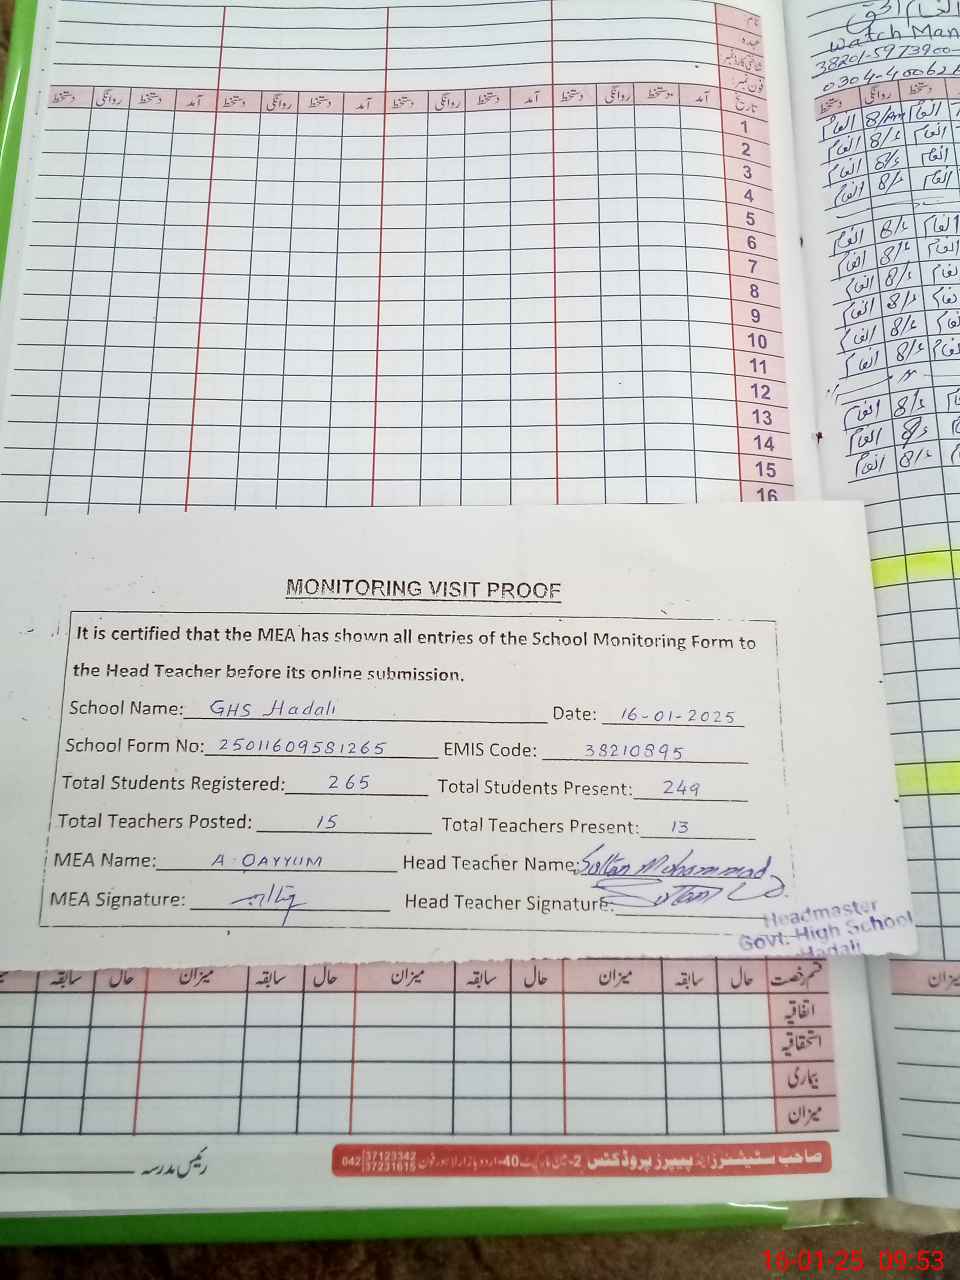 نام
عہدہ
شناختی کارڈ نمبر
فون نمبر:
تاریخ آمد دستخط روانگی دستخط آمد دستخط روانگی دستخط آمد دستخط روانگی دستخط آمد دستخط روانگی دستخط
1
2
3
4
5
6
7
8
9
10
11
12
13
14
15
16
Watch Man
38201-5973900-
0304-400626
دستخط روانگی دستخط
انعام 8/Am انعام
انعام 8/s انعام
انعام 8/s انعام
انعام 8/s انعام
انعام 8/s انعام
انعام 8/s انعام
انعام 8/s انعام
انعام 8/s انعام
انعام 8/s انعام
انعام 8/s انعام
انعام 8/s
انعام 8/s
انعام 8/s
MONITORING VISIT PROOF
It is certified that the MEA has shown all entries of the School Monitoring Form to
the Head Teacher before its online submission.
School Name: GHS Hadali Date: 16-01-2025
School Form No: 25011609581265 EMIS Code: 38210895
Total Students Registered: 265 Total Students Present: 249
Total Teachers Posted: 15 Total Teachers Present: 13
MEA Name: A. QAYYUM Head Teacher Name: Sultan Muhammad
MEA Signature: Head Teacher Signature: Sultan
Headmaster
Govt. High School
Hadali
قسم رخصت حال سابقہ میزان حال سابقہ میزان حال سابقہ میزان حال سابقہ
اتفاقیہ
استحقاقیہ
بیماری
میزان
میزان
رئیس مدرسہ
صاحب سٹیشنرز اینڈ پیپرز پروڈکٹس 2- 40-اردو بازار لاہور فون 042 37123342
37231615
16-01-25 09:53